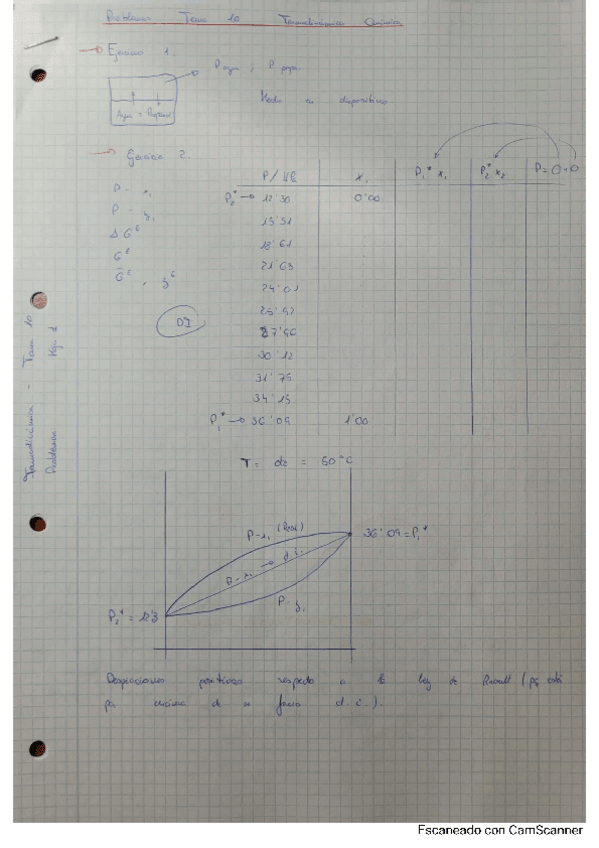 Problemas Tema 10 Termodinámica Química
Ejercicio 1.
P agua ; P propa.
Agua = Propanol
Ejercicio 2.
P/KPa X₁ P₁* x₁ P₂* x₂ P=O+O
P - x₁
P - y₁
ΔG^E
G^E
DI
P₂* → 12'30 0'00
15'51
18'61
21'63
24'01
25'92
27'96
30'12
31'75
34'15
P₁* → 36'09 1'00
T = cte = 50°C
P-x₁ (Real)
36'09 = P₁*
P-x₁ → d.i.
P-y₁
P₂* = 12'3
Desviaciones positivas respecto a la ley de Raoult (pq está
por encima de si fuera d.i.).
Termodinámica - Tema 10
Problemas Hoja 1
Escaneado con CamScanner